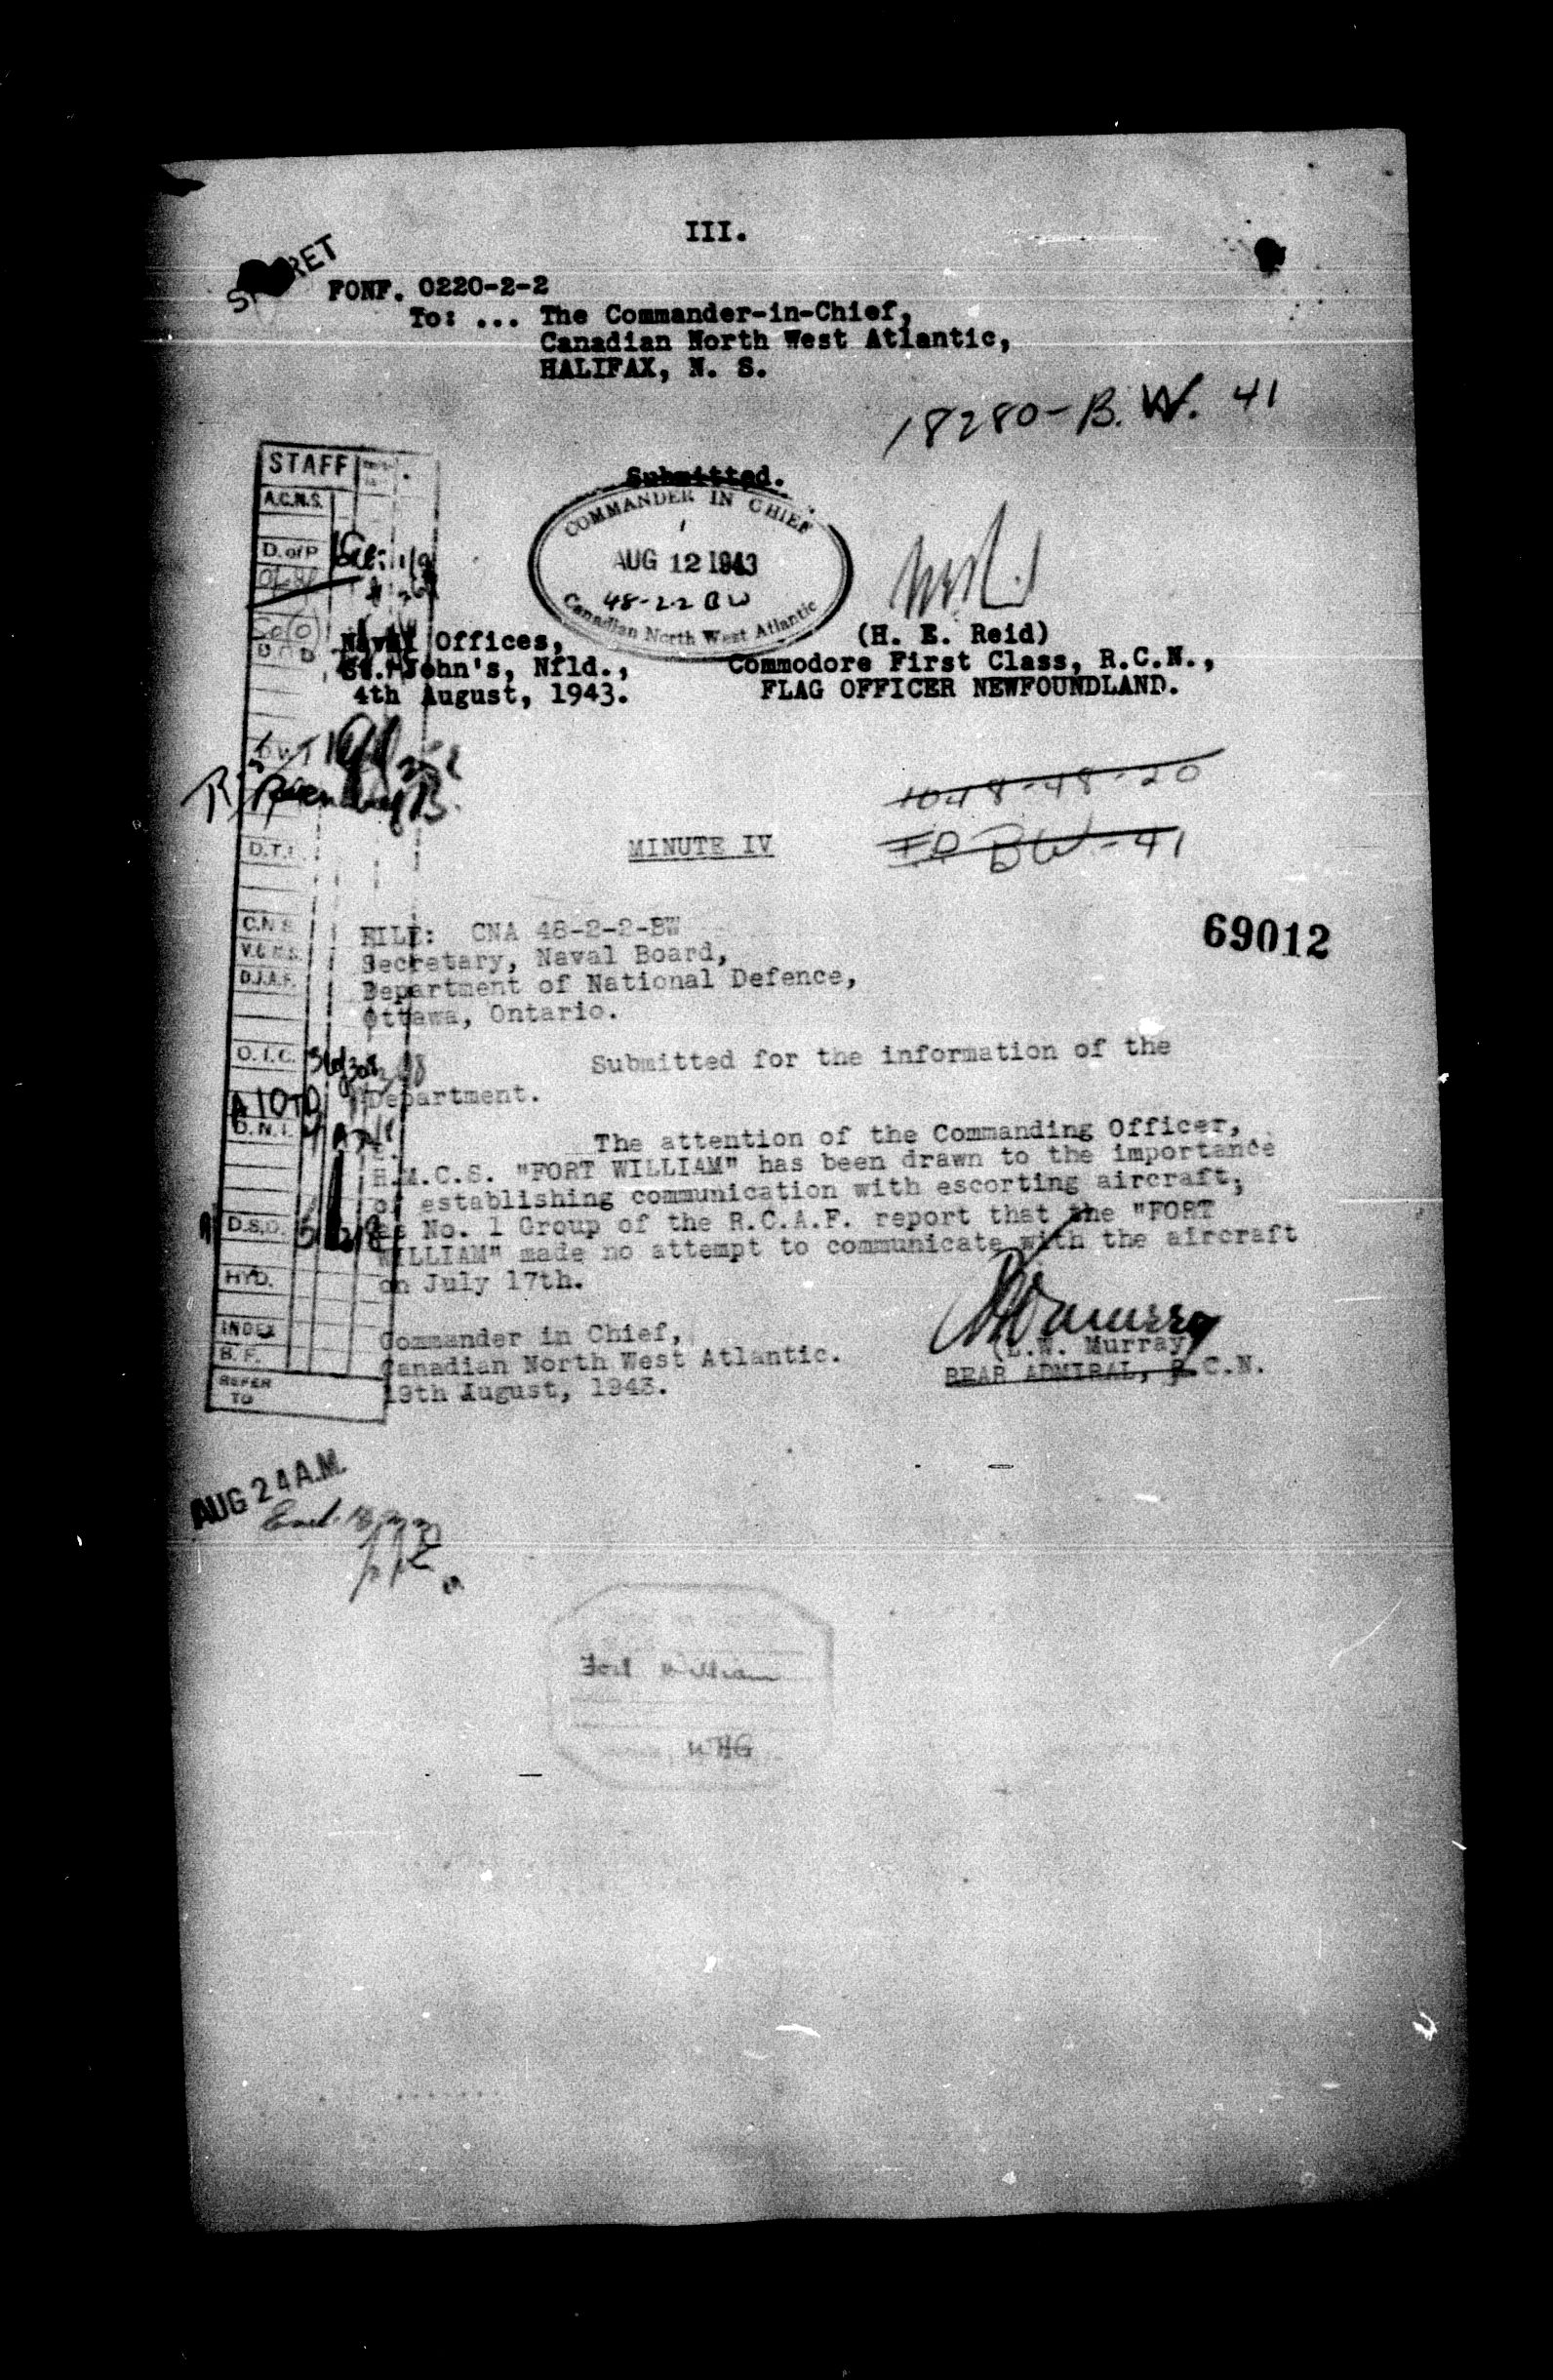 III.
SECRET
FONF. 0220-2-2
To: ... The Commander-in-Chief,
Canadian North West Atlantic,
HALIFAX, N. S.
18280-B.W. 41
Submitted.
COMMANDER IN CHIEF
AUG 12 1943
48-2-2 BW
Canadian North West Atlantic
STAFF
A.C.N.S.
D. of P
Naval Offices,
St. John's, Nfld.,
4th August, 1943.
(H. E. Reid)
Commodore First Class, R.C.N.,
FLAG OFFICER NEWFOUNDLAND.
1048-48-20
FD BW-41
MINUTE IV
69012
D.T.
C.N.S.
V.C.N.S.
D.J.A.F.
O.I.C.
D.N.I.
D.S.D.
HYD.
INDEX
B.F.
REFER
TO
FILE: CNA 48-2-2-BW
Secretary, Naval Board,
Department of National Defence,
Ottawa, Ontario.
Submitted for the information of the
Department.
The attention of the Commanding Officer,
H.M.C.S. "FORT WILLIAM" has been drawn to the importance
of establishing communication with escorting aircraft,
as No. 1 Group of the R.C.A.F. report that the "FORT
WILLIAM" made no attempt to communicate with the aircraft
on July 17th.
Commander in Chief,
Canadian North West Atlantic.
19th August, 1943.
(L.W. Murray)
REAR ADMIRAL, R.C.N.
AUG 24 A.M.
Fort William